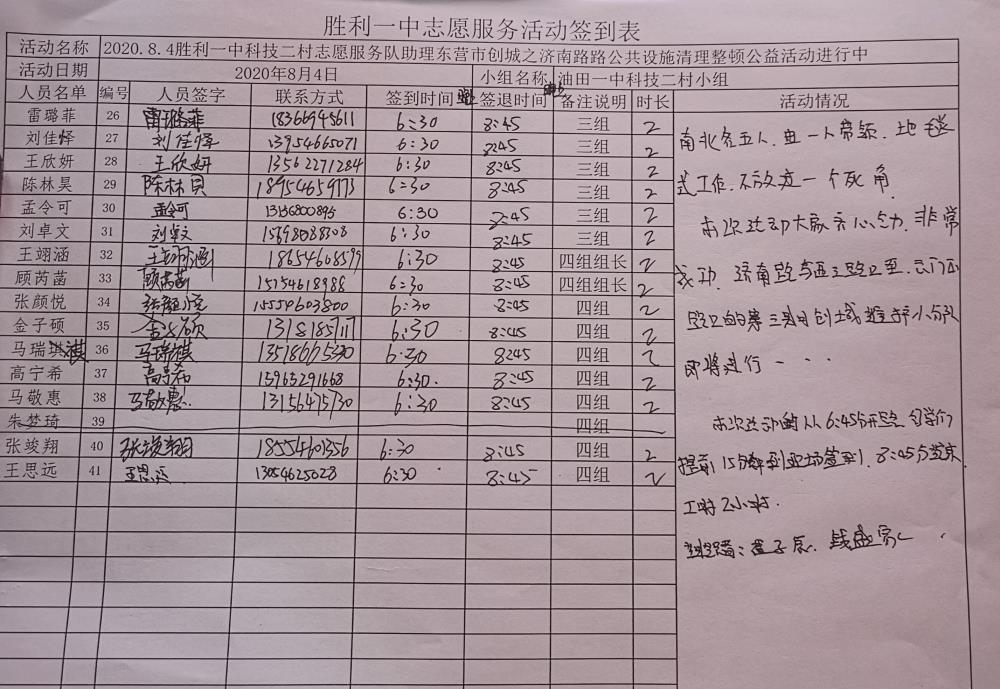 胜利一中志愿服务活动签到表
活动名称 2020.8.4胜利一中科技二村志愿服务队助理东营市创城之济南路路公共设施清理整顿公益活动进行中
活动日期 2020年8月4日 小组名称 油田一中科技二村小组
人员名单 编号 人员签字 联系方式 签到时间 签退时间 备注说明 时长 活动情况
雷璐菲 26 雷璐菲 18366945611 6:30 8:45 三组 2
刘佳怿 27 刘佳怿 13954665071 6:30 8:45 三组 2
王欣妍 28 王欣妍 13562271284 6:30 8:45 三组 2
陈林昊 29 陈林昊 18954659773 6:30 8:45 三组 2
孟令可 30 孟令可 13156800895 6:30 8:45 三组 2
刘卓文 31 刘卓文 15698088308 6:30 8:45 三组 2
王翊涵 32 王翊涵 18654608599 6:30 8:45 四组组长 2
顾芮菡 33 顾芮菡 15154618988 6:30 8:45 四组组长 2
张颜悦 34 张颜悦 15554603800 6:30 8:45 四组 2
金子硕 35 金子硕 13181851117 6:30 8:45 四组 2
马瑞祺 36 马瑞祺 13518665330 6:30 8:45 四组 2
高宁希 37 高宁希 15965291668 6:30 8:45 四组 2
马敬惠 38 马敬惠 13156475730 6:30 8:45 四组 2
朱梦琦 39 四组
张竣翔 40 张竣翔 18554601356 6:30 8:45 四组 2
王思远 41 王思远 13054625028 6:30 8:45 四组 2
南北各五人，由一人带领，地毯
式工作，不放过一个死角
本次活动大家齐心协力，非常
成功，济南路与西三路口至
路口的第三期创城
即将进行一...
本次活动从6:45分开始，同学们
提前15分钟到现场签到，8:45分结束
工时2小时.